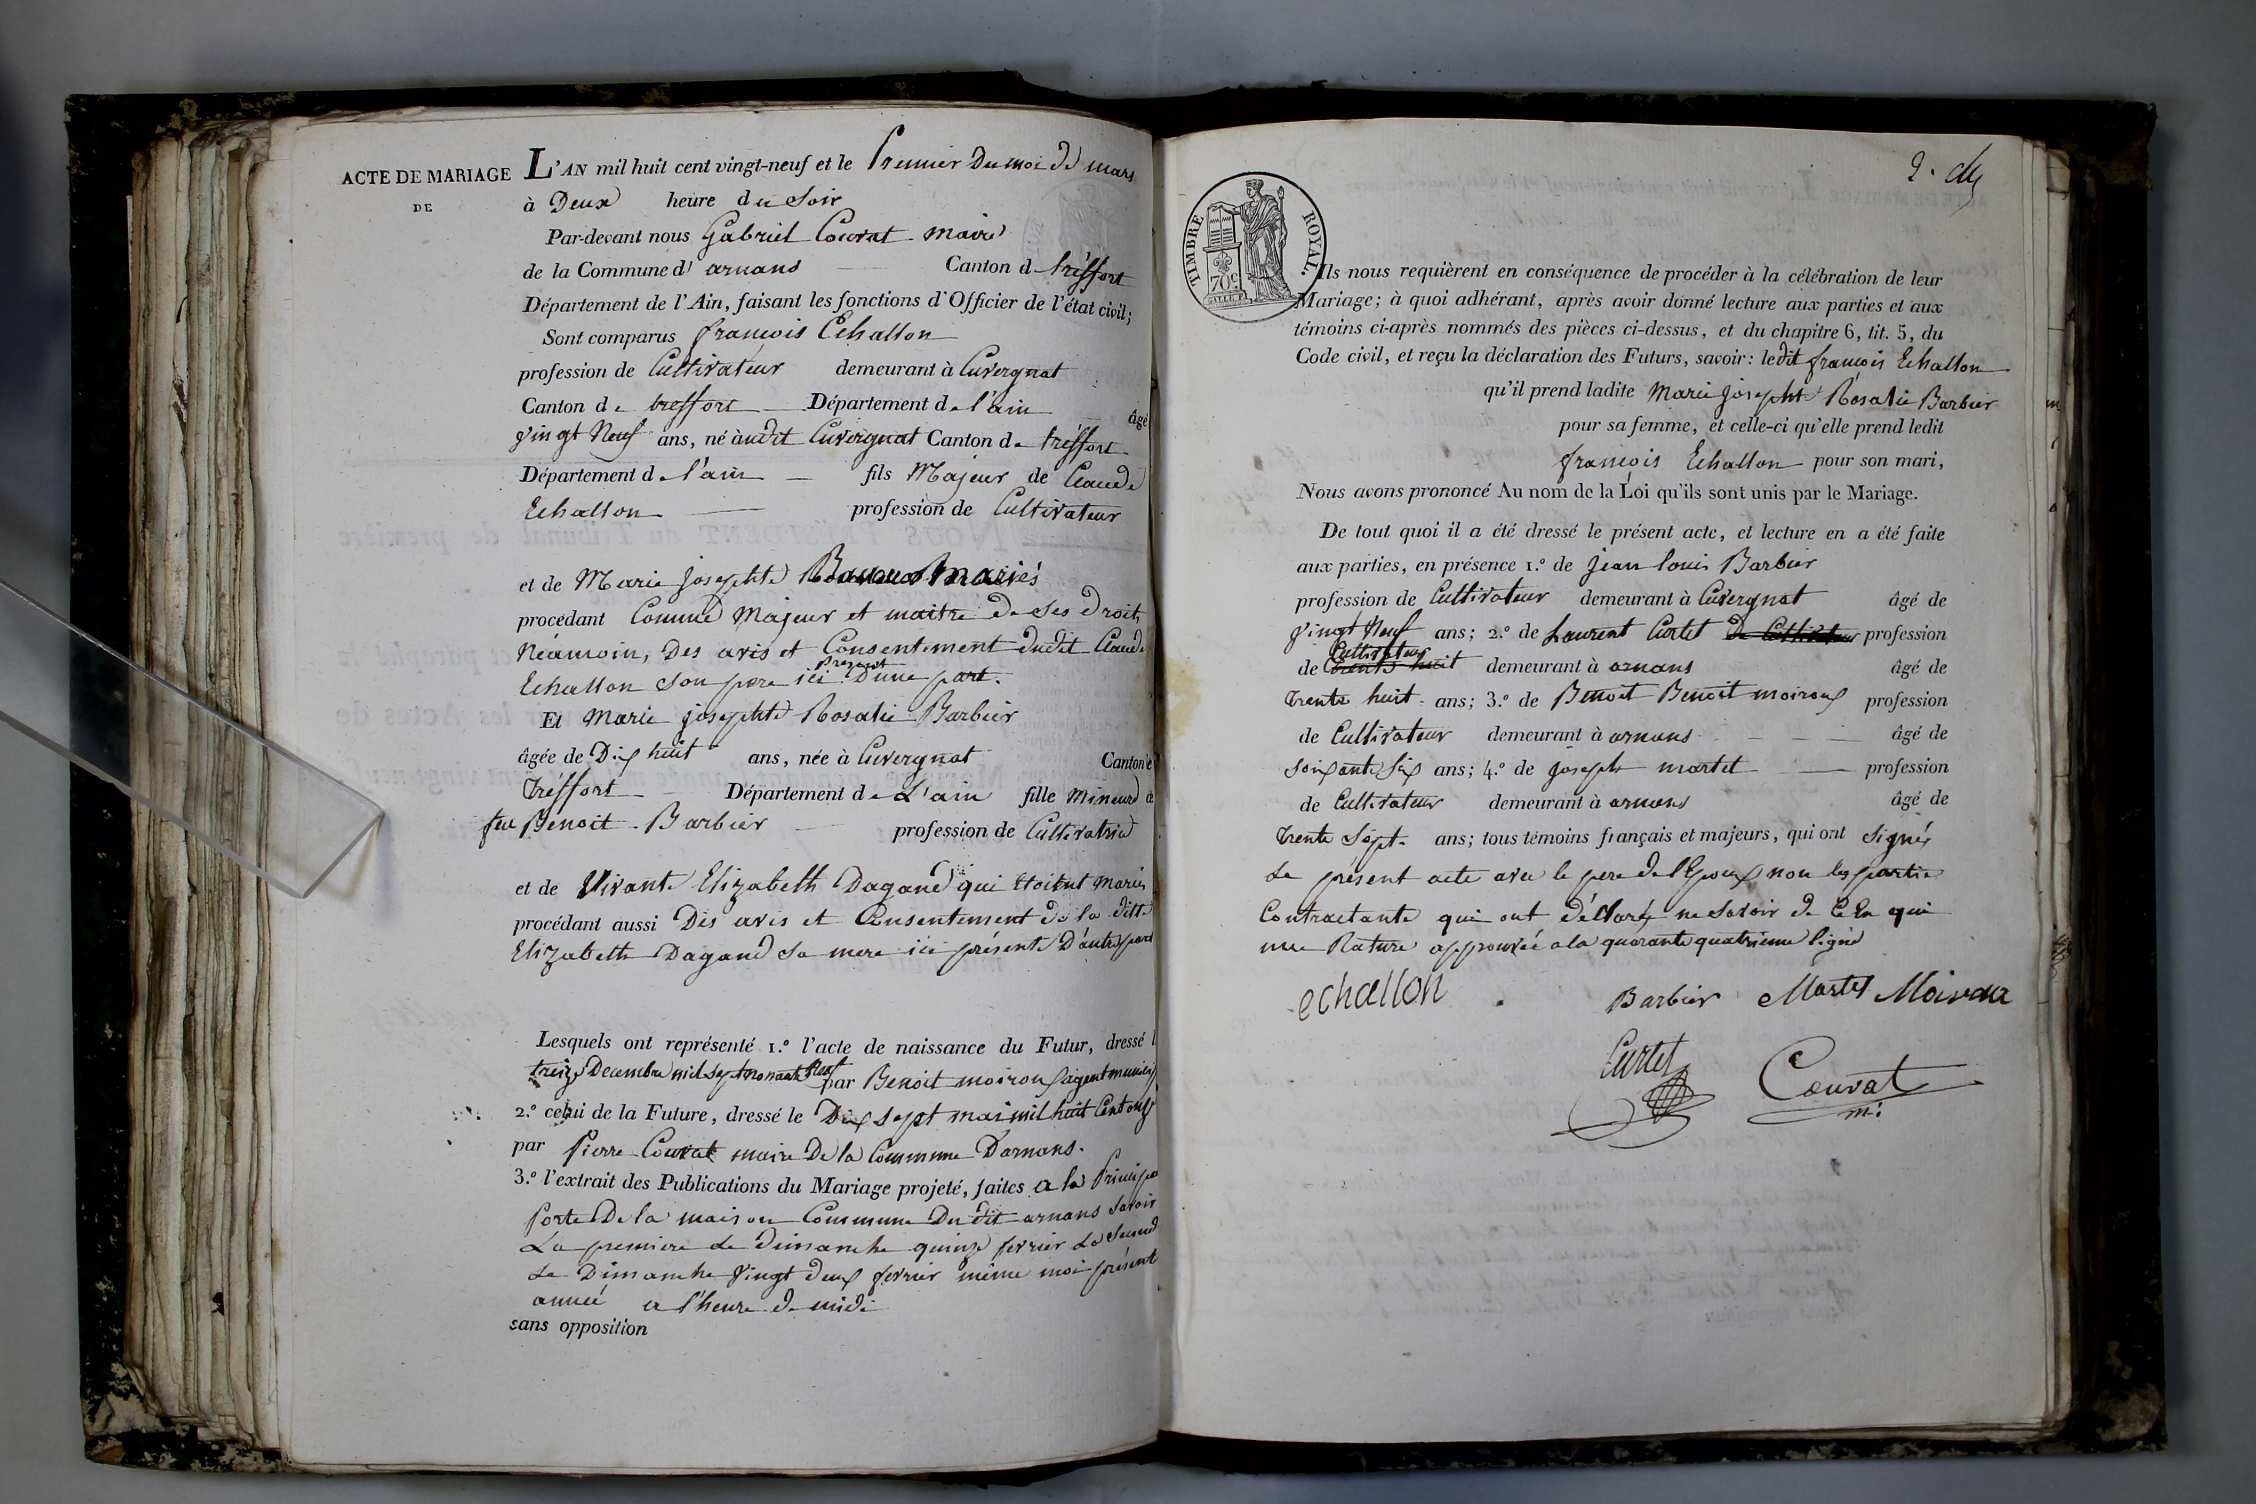 ACTE DE MARIAGE
DE
L'AN mil huit cent vingt-neuf et le Premier Du moi de mars
à Deux heure du Soir
Par-devant nous Gabriel Couvat maire
de la Commune d' arnans Canton de tréffort
Département de l'Ain, faisant les fonctions d'Officier de l'état civil;
Sont comparus françois Echallon
profession de Cultivateur demeurant à Cuvergnat
Canton de treffort Département de l'ain âgé
vingt Neuf ans, né àudit Cuvergnat Canton de tréffort
Département de l'ain fils Majeur de Claude
Echallon profession de Cultivateur
et de Marie Josephte mariés
procédant Comme Majeur et maitre de ses droits
Néamoin, Des avis et Consentement dudit Claude
Echallon son pere ici présent D'une part.
Et Marie josephte Rosalie Barbier
âgée de Dix huit ans, née à Cuvergnat Canton de
Tréffort Département de L'ain fille mineure de
feu Benoit Barbier profession de Cultivatrice
et de Vivante Elizabeth Dagand qui étoient mariés
procédant aussi Des avis et Consentement de la ditte
Elizabeth Dagand sa mere ici présente D'autre part
Lesquels ont représenté 1.º l'acte de naissance du Futur, dressé l
treize Decembre mil sept nonante Neuf par Benoit moiroux agent municip
2.º celui de la Future, dressé le Dix sept mai mil huit Cent onze
par Pierre Couvat maire De la Commune D'arnans.
3.º l'extrait des Publications du Mariage projeté, faites a la Principa
Porte De la maison Commune Du dit arnans Savoir
La premiere le dimanche quinze fevrier La Second
Le Dimanche Vingt deux fevrier même moi présente
année a l'heure de midi
sans opposition
TIMBRE ROYAL.
70 c.
Ils nous requièrent en conséquence de procéder à la célébration de leur
Mariage; à quoi adhérant, après avoir donné lecture aux parties et aux
témoins ci-après nommés des pièces ci-dessus, et du chapitre 6, tit. 5, du
Code civil, et reçu la déclaration des Futurs, savoir: ledit françois Echallon
qu'il prend ladite Marie Josephte Rosalie Barbier
pour sa femme, et celle-ci qu'elle prend ledit
françois Echallon pour son mari,
Nous avons prononcé Au nom de la Loi qu'ils sont unis par le Mariage.
De tout quoi il a été dressé le présent acte, et lecture en a été faite
aux parties, en présence 1.º de jean louis Barbier
profession de Cultivateur demeurant à Cuvergnat âgé de
Vingt Neuf ans; 2.º de Laurent Curtet De Cultivateur profession
Cultivateur
de trente huit demeurant à arnans âgé de
trente huit ans; 3.º de Benoit Benoit moiroux profession
de Cultivateur demeurant à arnans âgé de
soixante Six ans; 4.º de joseph martel profession
de Cultivateur demeurant à arnans âgé de
trente Sept ans; tous témoins français et majeurs, qui ont signés
Le présent acte avec le pere de l'Epoux non les partie
Contractante qui ont déClarés ne Savoir de Ce En qui
une Rature approuvée a la quarante quatrieme ligne
echallon Barbier Martel Moiroux
Curtet Couvat
m: